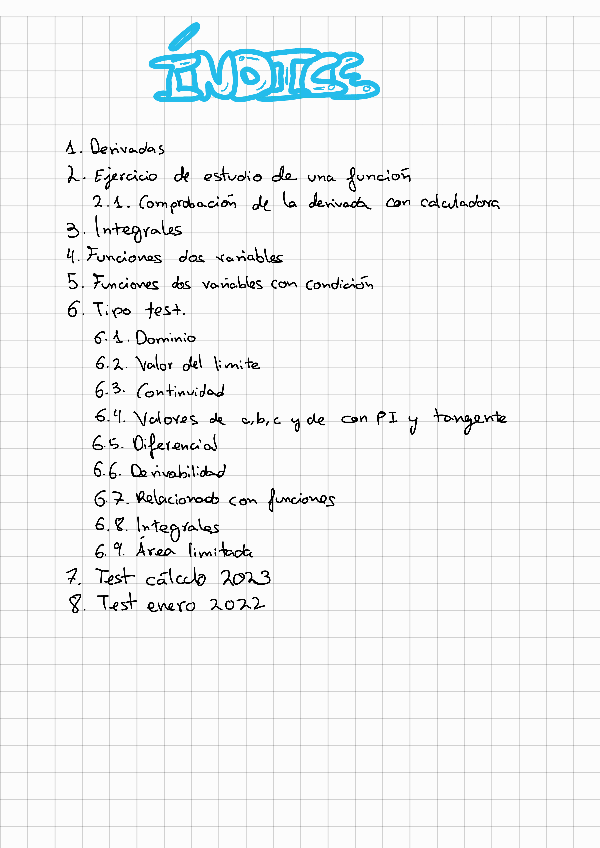 ÍNDICE
1. Derivadas
2. Ejercicio de estudio de una función
2.1. Comprobación de la derivada con calculadora
3. Integrales
4. Funciones dos variables
5. Funciones dos variables con condición
6. Tipo test.
6.1. Dominio
6.2. Valor del limite
6.3. Continuidad
6.4. Valores de a, b, c y de con PI y tangente
6.5. Diferencial
6.6. Derivabilidad
6.7. Relacionado con funciones
6.8. Integrales
6.9. Área limitada
7. Test cálculo 2023
8. Test enero 2022